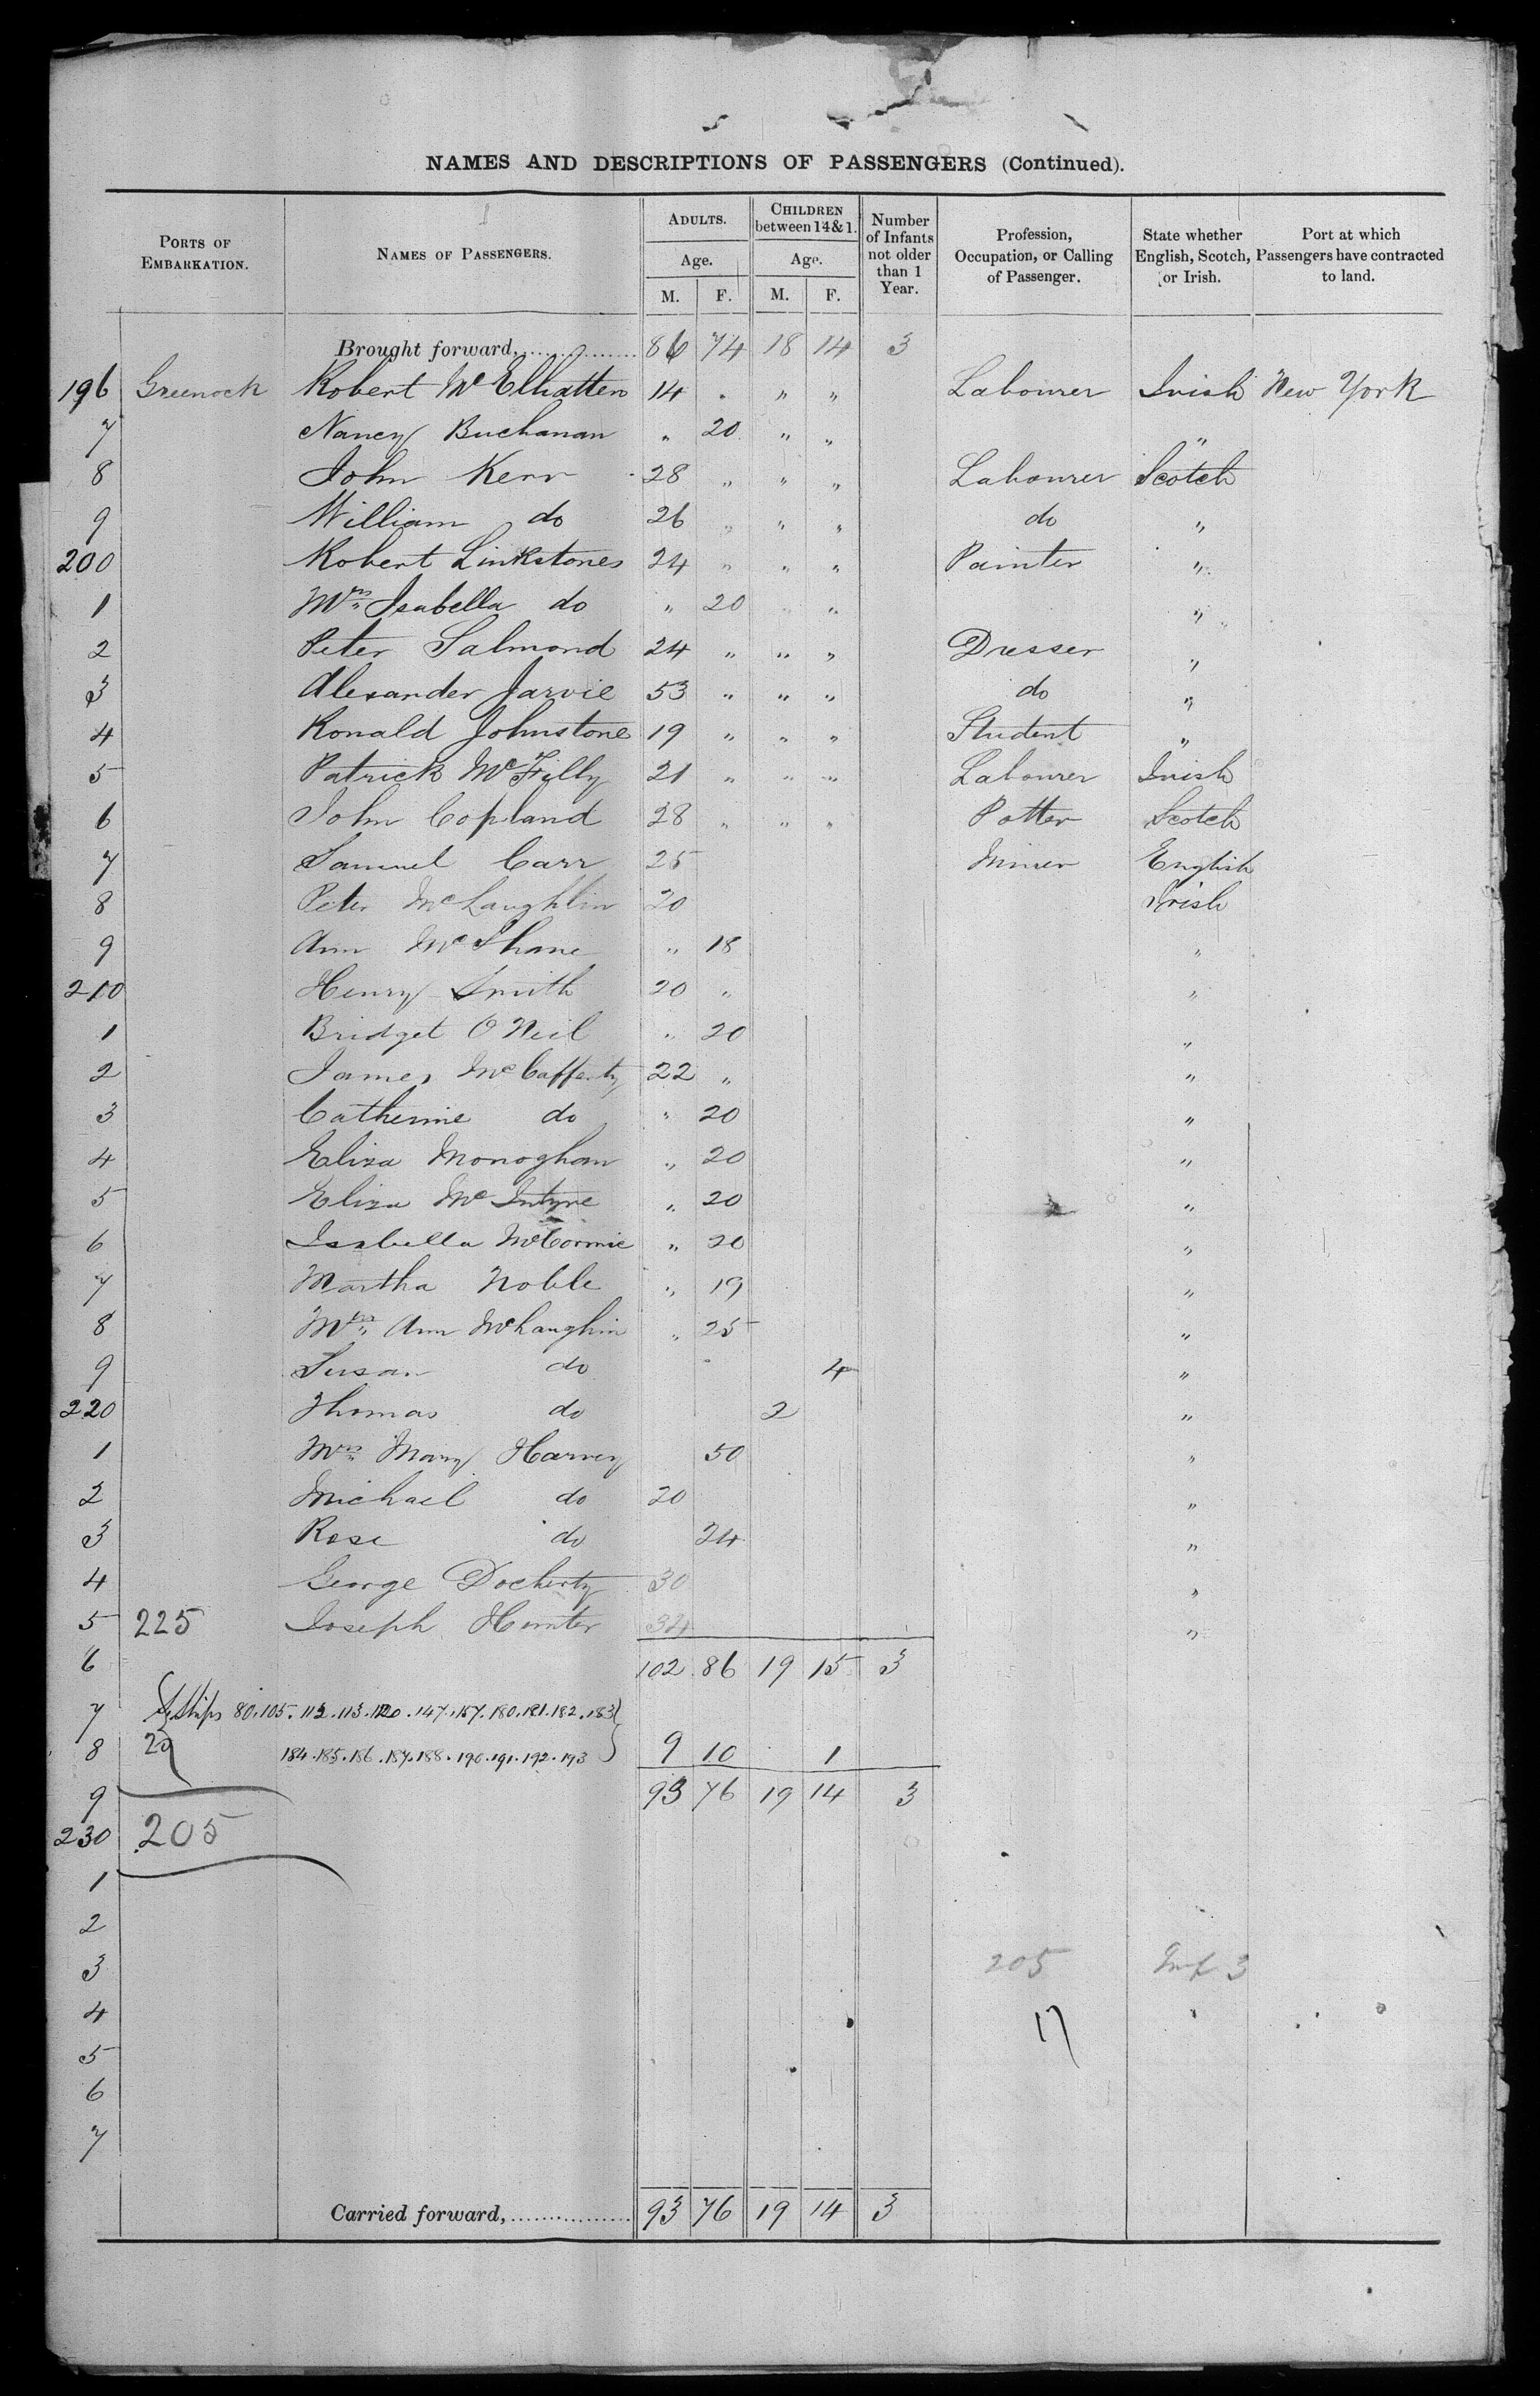 NAMES AND DESCRIPTIONS OF PASSENGERS (Continued).
PORTS OF EMBARKATION. NAMES OF PASSENGERS. ADULTS. Age. M. F. CHILDREN between 14 & 1. Age. M. F. Number of Infants not older than 1 Year. Profession, Occupation, or Calling of Passenger. State whether English, Scotch, or Irish. Port at which Passengers have contracted to land.
Brought forward, 86 74 18 14 3
196 Greenock Robert McElhatten 14 " " " Labourer Irish New York
7 Nancy Buchanan " 20 " " "
8 John Kerr 28 " " " Labourer Scotch
9 William do 26 " " " do "
200 Robert Linkstones 24 " " " Painter "
1 Mrs Isabella do " 20 " " "
2 Peter Salmond 24 " " " Dresser "
3 Alexander Jarvie 53 " " " do "
4 Ronald Johnstone 19 " " " Student "
5 Patrick McFilly 21 " " " Labourer Irish
6 John Copland 28 " " " Potter Scotch
7 Samuel Carr 25 Miner English
8 Peter McLaughlin 20 Irish
9 Ann McShane " 18 "
210 Henry Smith 20 " "
1 Bridget O'Neil " 20 "
2 James McCafferty 22 " "
3 Catherine do " 20 "
4 Eliza Monoghan " 20 "
5 Eliza McIntyre " 20 "
6 Isabella McCormic " 20 "
7 Martha Noble " 19 "
8 Mrs Ann McLaughin " 25 "
9 Susan do " 4 "
220 Thomas do 2 "
1 Mrs Mary Harvey 50 "
2 Michael do 20 "
3 Rose do 24 "
4 George Docherty 30 "
5 225 Joseph Hunter 34 "
6 102 86 19 15 3
7 80.105.112.113.120.147.157.180.181.182.183
8 20 184.185.186.187.188.190.191.192.193 9 10 1
9 93 76 19 14 3
230 205
1
2
3 205 Inf 3
4 17
5
6
7
Carried forward, 93 76 19 14 3